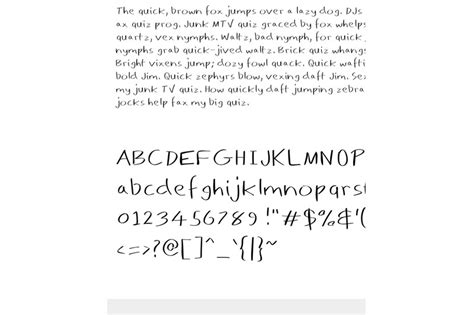 The quick, brown fox jumps over a lazy dog. DJs
ax quiz prog. Junk MTV quiz graced by fox whelps
quartz, vex nymphs. Waltz, bad nymph, for quick
nymphs grab quick-jived waltz. Brick quiz whangs
Bright vixens jump; dozy fowl quack. Quick wafti
bold Jim. Quick zephyrs blow, vexing daft Jim. Se
my junk TV quiz. How quickly daft jumping zebra
jocks help fax my big quiz.
ABCDEFGHIJKLMNOP
abcdefghijklmnopqrst
0123456789!"#$%&'(
<=>?@[]^_`{|}~